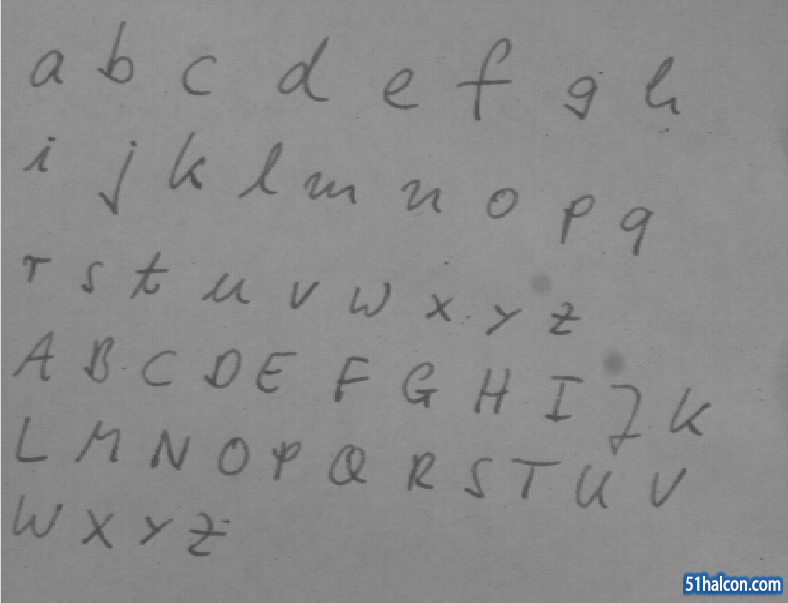 a b c d e f g h
i j k l m n o p q
r s t u v w x y z
A B C D E F G H I J K
L M N O P Q R S T U V
W X Y Z
51halcon.com